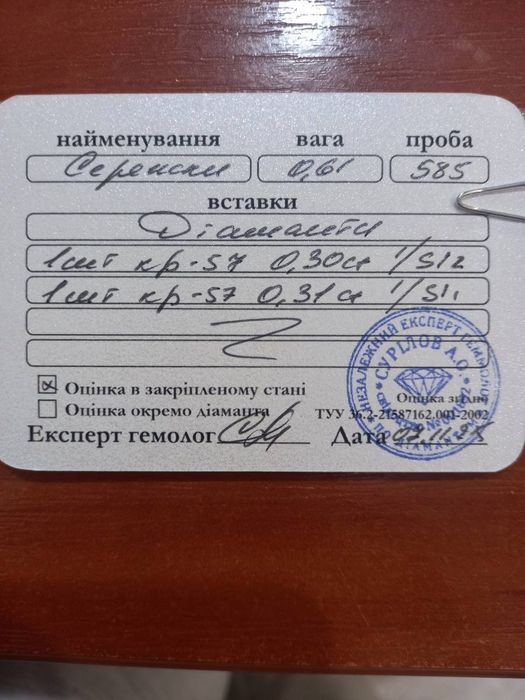 найменування вага проба
Сережки 0,61 585
вставки
Діаманти
1 шт кр-57 0,30 ct I/SI2
1 шт кр-57 0,31 ct I/SI1
Оцінка в закріпленому стані
Оцінка окремо діаманта
Оцінка згідно
ТУУ 36.2-21587162.001-2002
Експерт гемолог Дата
НЕЗАЛЕЖНИЙ ЕКСПЕРТ ГЕММОЛОГ
СУРІЛОВ А.О.
ПО ДІАМАНТАМ